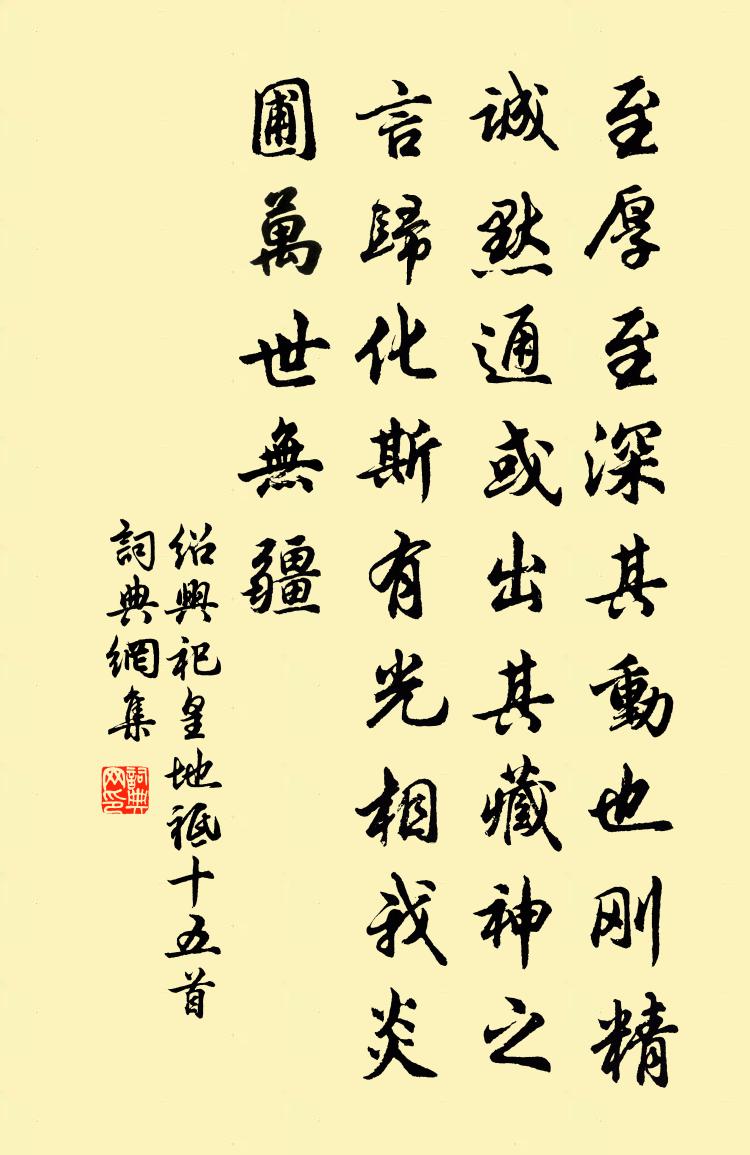 至厚至深其動也刚精
誠默通或出其藏神之
言歸化斯有光相我炎
圃萬世無疆
紹興祀皇地祗十五首
詞典網集
詞典
网印